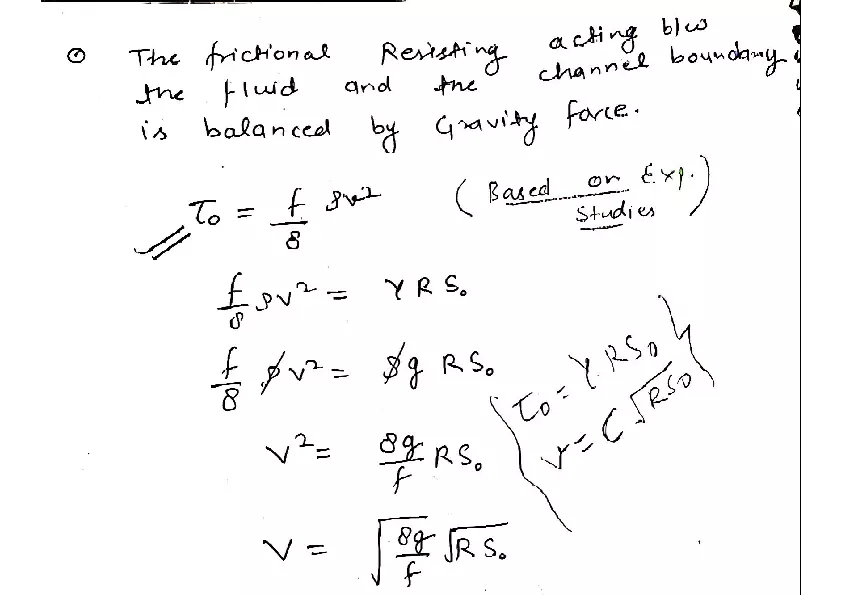 ⊙ The frictional Resisting acting b/w
the fluid and the channel boundary
is balanced by Gravity force.
τ₀ = f/8 ρv² (Based on Exp. Studies)
f/8 ρv² = γ R S₀
f/8 ρv² = ρg R S₀
v² = 8g/f R S₀
V = √(8g/f) √(R S₀)
τ₀ = γ R S₀
v = C √(R S₀)